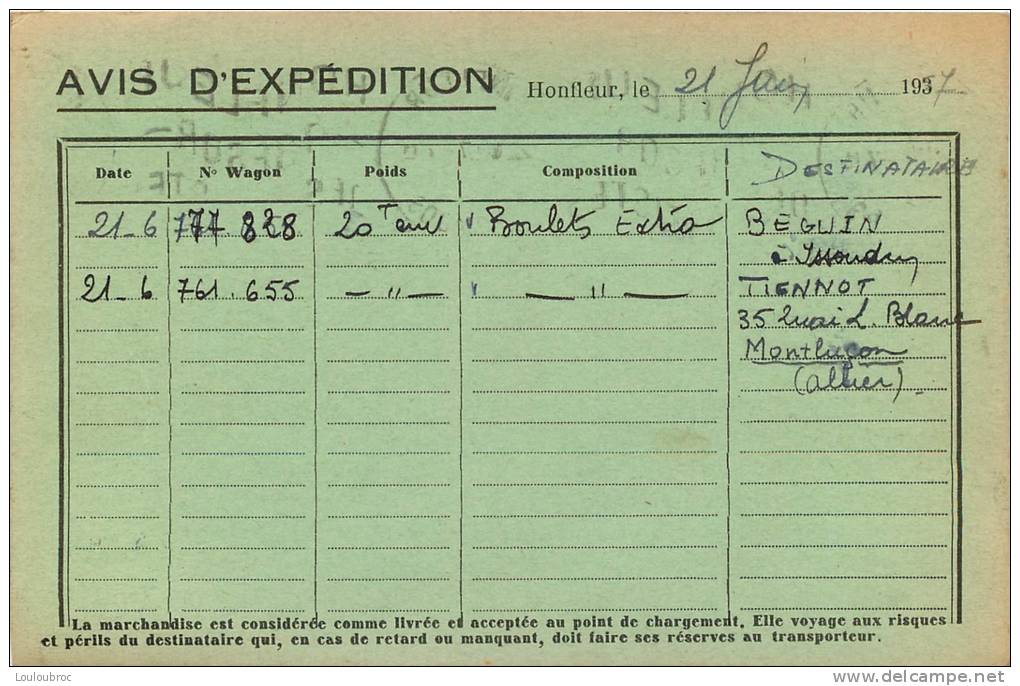 AVIS D'EXPÉDITION Honfleur, le 21 Juin 1937
Date N° Wagon Poids Composition DESTINATAIRE
21-6 777.828 20 T env Boulets Extra BEGUIN
à Issoudun
21-6 761.655 — " — — " — TIENNOT
35 Quai L. Blanc
Montluçon
(Allier)
La marchandise est considérée comme livrée et acceptée au point de chargement. Elle voyage aux risques
et périls du destinataire qui, en cas de retard ou manquant, doit faire ses réserves au transporteur.
Louloubroc
delcampe.net